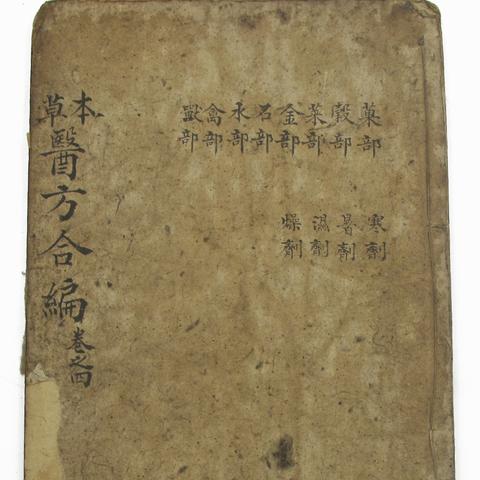 菓部
穀部
菜部
金部
石部
水部
禽部
獸部
寒劑
暑劑
濕劑
燥劑
本草
醫方合編
卷之四